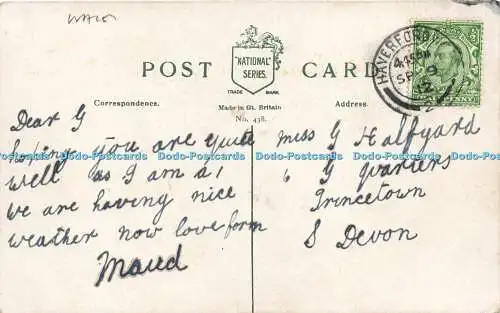 WALES
POST CARD
"NATIONAL"
SERIES.
TRADE MARK.
HAVERFORDW
4.45PM
SP 9
12
2
PENNY
Correspondence.
Made in Gt. Britain
No. 438.
Address.
Dear G
hoping you are quite
well as I am &
we are having nice
weather now love from
Maud
Miss G Halfyard
6 G quarters
Princetown
S Devon
Dodo-Postcards Dodo-Postcards Dodo-Postcards Dodo-Postcards Dodo-Postcards